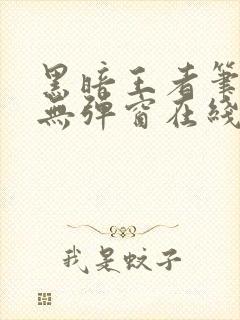 黑暗王者筆
無彈窗在綫
我是蚊子